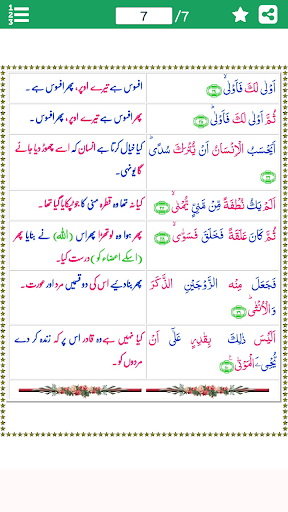 1
2
3
7 /7
اَوْلٰى لَكَ فَاَوْلٰىۙ
افسوس ہے تیرے اوپر، پھر افسوس ہے ۔
ثُمَّ اَوْلٰى لَكَ فَاَوْلٰىؕ
پھر افسوس ہے تیرے اوپر، پھر افسوس ۔
اَيَحْسَبُ الْاِنْسَانُ اَنْ يُّتْرَكَ سُدًىؕ
کیا خیال کرتا ہے انسان کہ اسے چھوڑ دیا جائے
گا یونہی۔
اَلَمْ يَكُ نُطْفَةً مِّنْ مَّنِىٍّ يُّمْنٰىۙ
کیا نہ تھا وہ قطرہ منی کا جو ٹپکایا گیا تھا۔
ثُمَّ كَانَ عَلَقَةً فَخَلَقَ فَسَوّٰىۙ
پھر ہوا وہ لوتھڑا پھر اس (اللہ) نے بنایا پھر
(اسکے اعضاء کو) درست کیا۔
فَجَعَلَ مِنْهُ الزَّوْجَيْنِ الذَّكَرَ
وَالْاُنْثٰىؕ
پھر بنا دیئے اس کی دو قسمیں مرد اور عورت۔
اَلَيْسَ ذٰلِكَ بِقٰدِرٍ عَلٰٓى اَنْ
يُّحْيِۦَ الْمَوْتٰى
کیا نہیں ہے وہ قادر اس پر کہ زندہ کر دے
مردوں کو۔